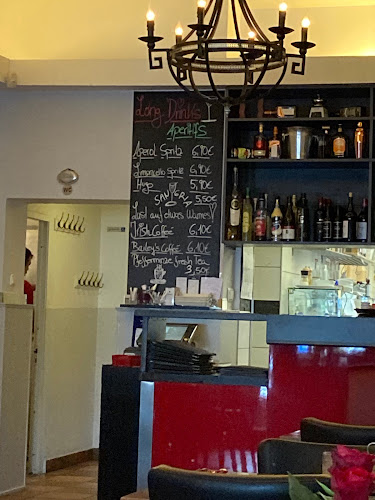 Long Drinks
Aperitifs
Aperol Spritz 6,90€
Limoncello Spritz 6,90€
Hugo 5,90€
SANGRIA
5,50€
Lust auf etwas Warmes?
Irish Coffee 6,10€
Bailey's Coffee 6,10€
Pfefferminze fresh Tea
3,50€